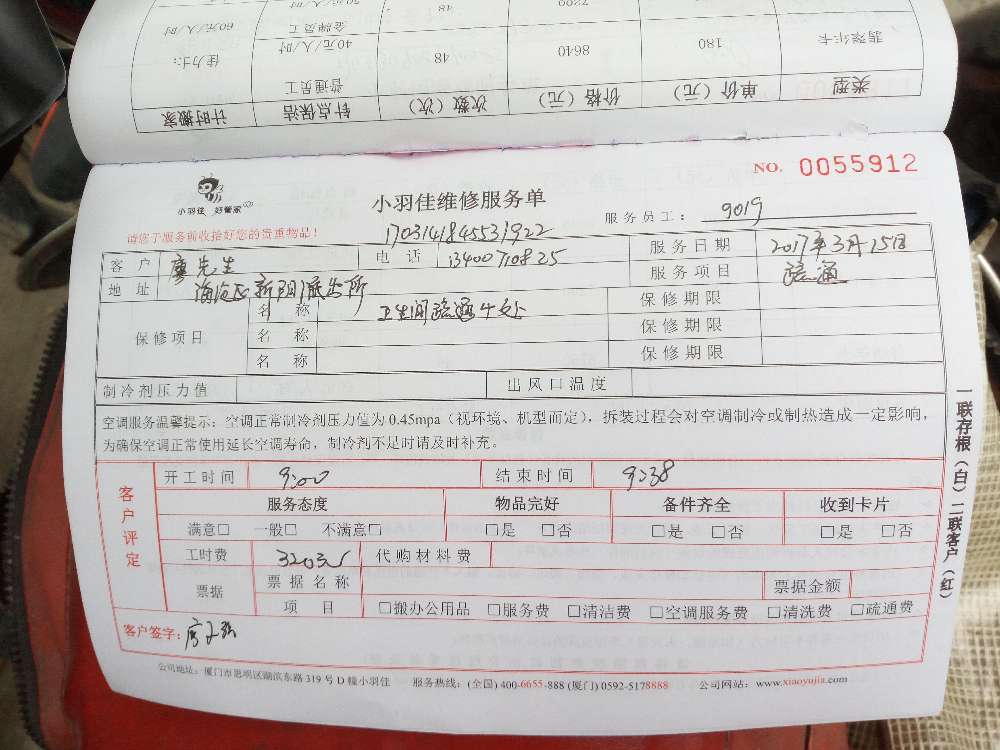 计时搬家 针点保洁 次数（次） 价格（元） 单价（元） 类型
佳力士: 普通员工 40元/人/时 48 8640 180 翡翠年卡
60元/人/时 金牌员工 48 7200
NO. 0055912
小羽佳 好管家
小羽佳维修服务单
服务员工： 9019
请您于服务前收拾好您的贵重物品！
170314184553 1922
客户 廖先生 电话 13400710825 服务日期 2017年3月15日
地址 海沧区新阳派出所 服务项目 疏通
保修项目 名称 卫生间疏通4处 保修期限
名称 保修期限
名称 保修期限
制冷剂压力值 出风口温度
空调服务温馨提示：空调正常制冷剂压力值为0.45mpa（视环境、机型而定），拆装过程会对空调制冷或制热造成一定影响，
为确保空调正常使用延长空调寿命，制冷剂不足时请及时补充。
客户评定
开工时间 9:00 结束时间 9:38
服务态度 物品完好 备件齐全 收到卡片
满意□ 一般□ 不满意□ □是 □否 □是 □否 □是 □否
工时费 320元 代购材料费
票据 票据名称 票据金额
项目 □搬办公用品 □服务费 □清洁费 □空调服务费 □清洗费 □疏通费
客户签字:
公司地址：厦门市思明区湖滨东路 319 号 D 幢小羽佳 服务热线：(全国) 400-6655-888 (厦门) 0592-5178888 公司网站：www.xiaoyujia.com
一联存根（白）二联客户（红）